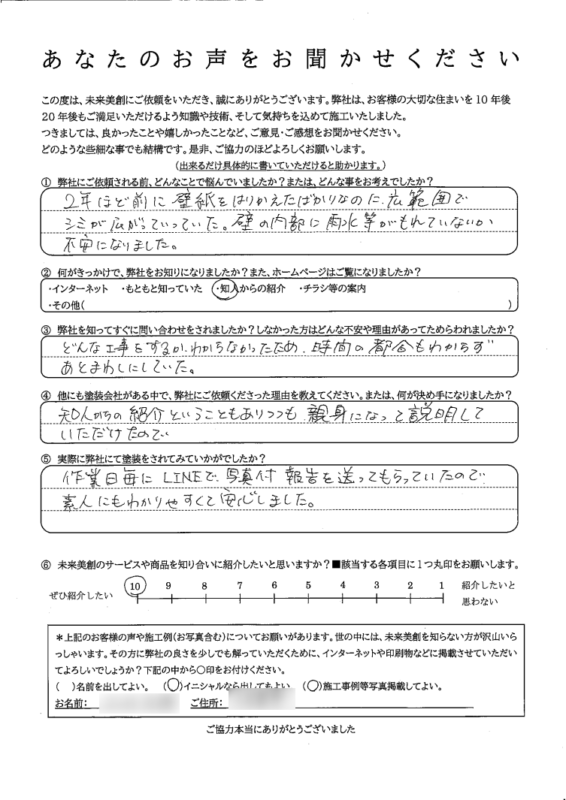 あなたのお声をお聞かせください
この度は、未来美創にご依頼をいただき、誠にありがとうございます。弊社は、お客様の大切な住まいを10年後
20年後もご満足いただけるよう知識や技術、そして気持ちを込めて施工いたしました。
つきましては、良かったことや嬉しかったことなど、ご意見・ご感想をお聞かせください。
どのような些細な事でも結構です。是非、ご協力のほどよろしくお願いします。
（出来るだけ具体的に書いていただけると助かります。）
① 弊社にご依頼される前、どんなことで悩んでいましたか？または、どんな事をお考えでしたか？
2年ほど前に壁紙をはりかえたばかりなのに、広範囲で
シミが広がっていっていた。壁の内部に雨水等がもれていないか
不安になりました。
② 何がきっかけで、弊社をお知りになりましたか？また、ホームページはご覧になりましたか？
・インターネット ・もともと知っていた ・知人からの紹介 ・チラシ等の案内
・その他( )
③ 弊社を知ってすぐに問い合わせをされましたか？しなかった方はどんな不安や理由があってためらわれましたか？
どんな工事をするか、わからなかったため、時間の都合もわからず
あとまわしにしていた。
④ 他にも塗装会社がある中で、弊社にご依頼くださった理由を教えてください。または、何が決め手になりましたか？
知人からの紹介ということもありつつも 親身になって説明して
いただけたので
⑤ 実際に弊社にて塗装をされてみていかがでしたか？
作業日毎にLINEで、写真付 報告を送ってもらっていたので
素人にもわかりやすくて安心しました。
⑥ 未来美創のサービスや商品を知り合いに紹介したいと思いますか？■該当する各項目に1つ丸印をお願いします。
ぜひ紹介したい 10 9 8 7 6 5 4 3 2 1 紹介したいと
思わない
＊上記のお客様の声や施工例(お写真含む)についてお願いがあります。世の中には、未来美創を知らない方が沢山いら
っしゃいます。その方に弊社の良さを少しでも解っていただくために、インターネットや印刷物などに掲載させていただい
てよろしいでしょうか？下記の中から〇印をお付けください。
( )名前を出してよい。 (〇)イニシャルなら出してもよい (〇)施工事例等写真掲載してよい。
お名前： ご住所：
ご協力本当にありがとうございました